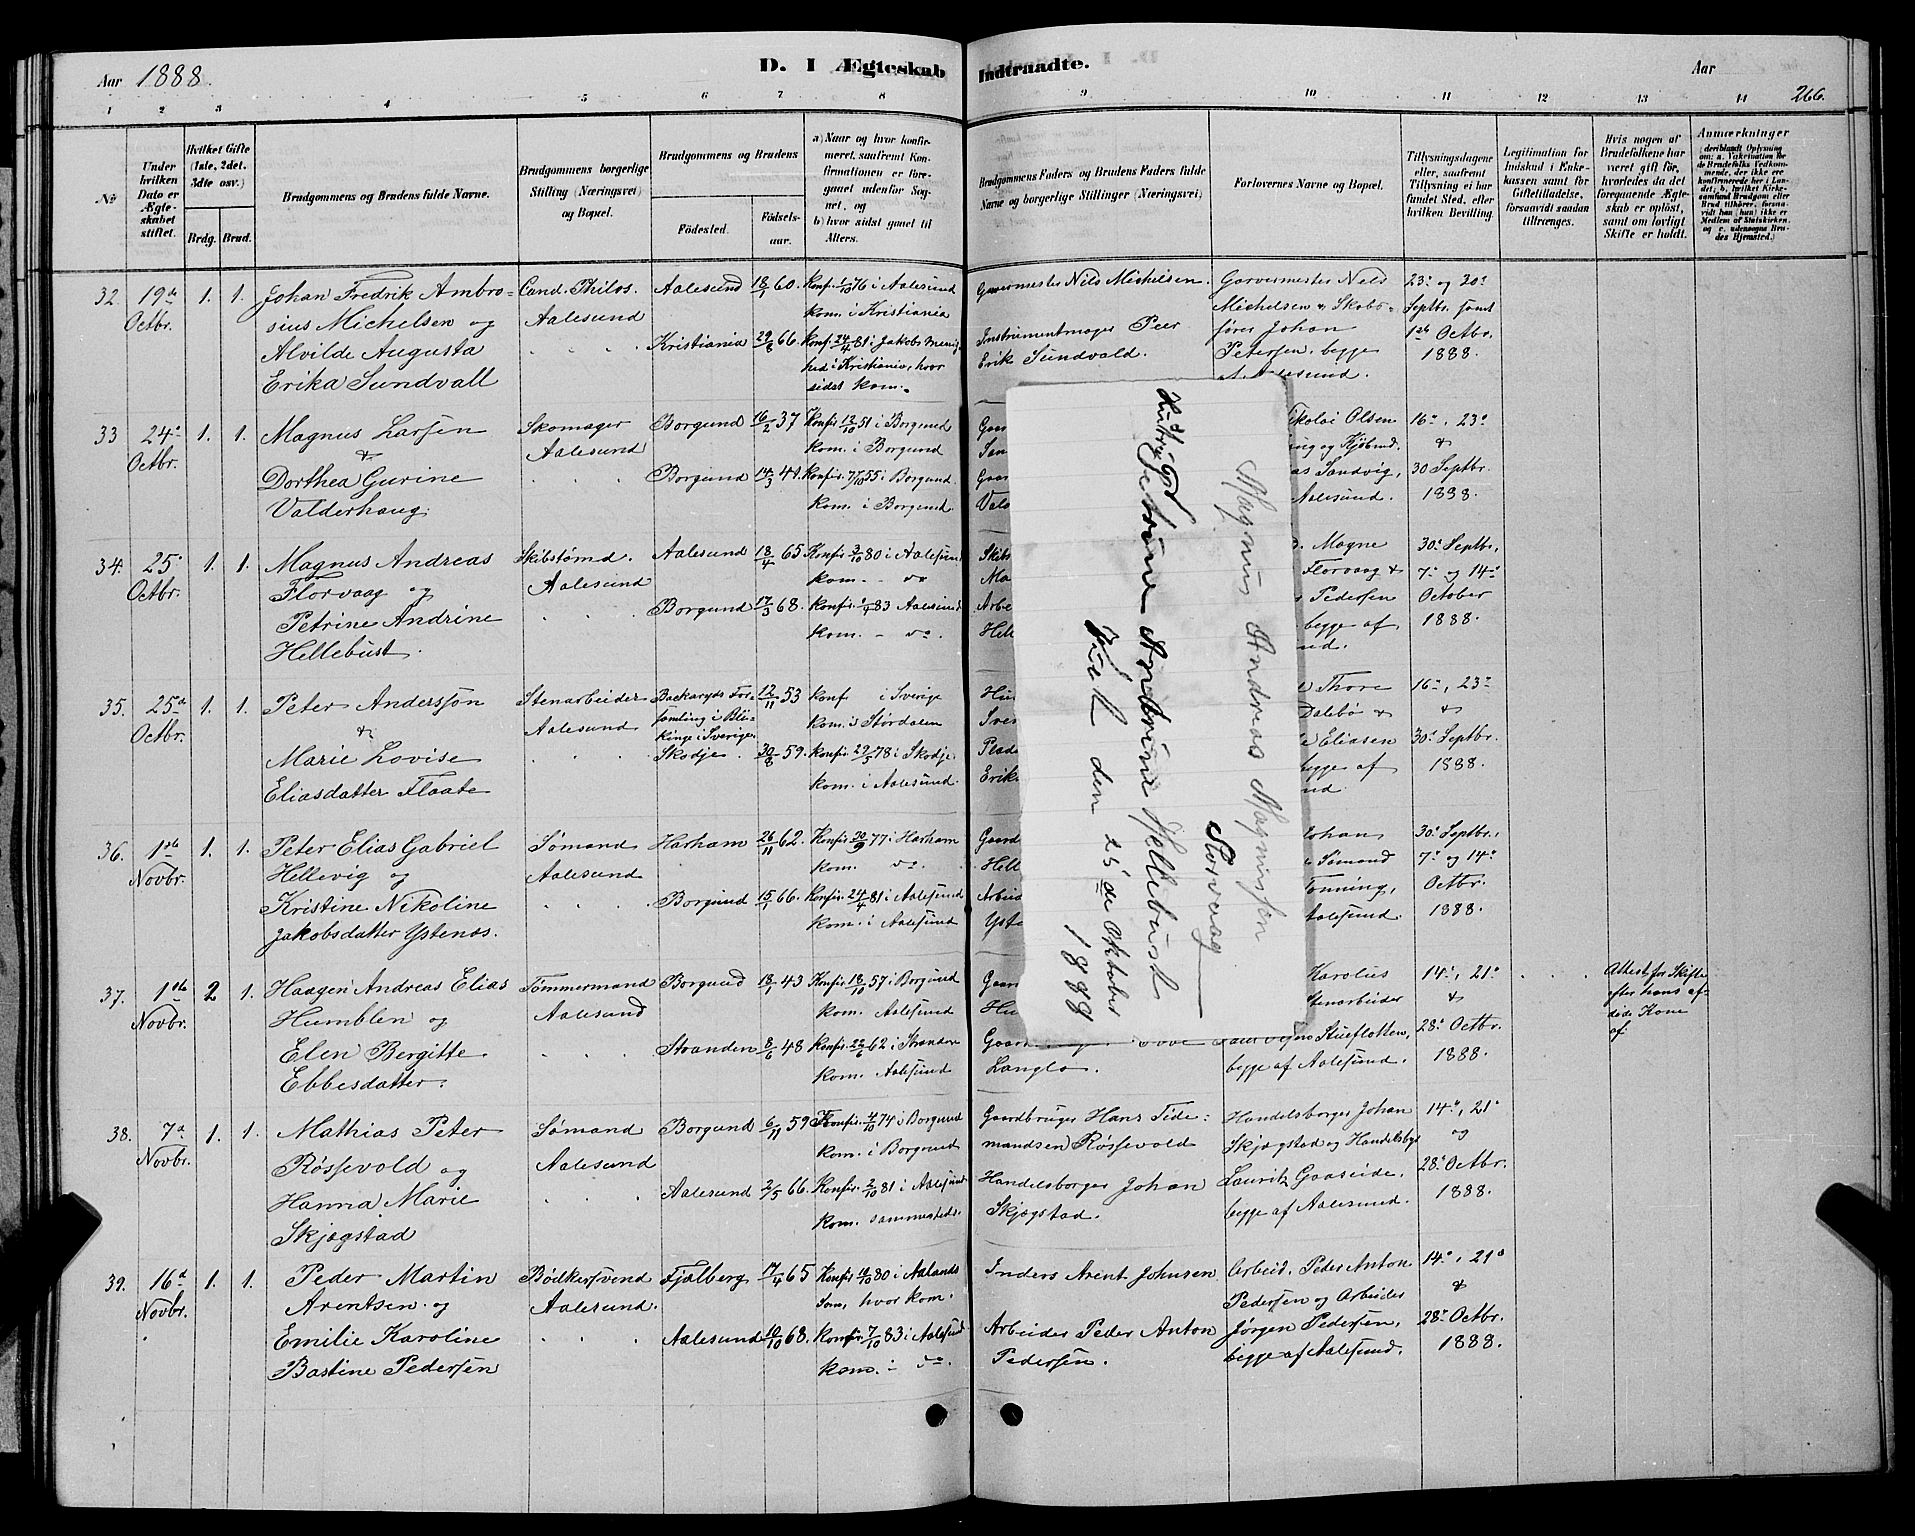 Aar 1888.
D. I Ægteskab Indtraadte.
Aar
266.
1 2 3 4 5 6 7 8 9 10 11 12 13 14
No
Under hvilken Dato er Ægteskabet stiftet.
Hvilket Gifte (1ste, 2det, 3dte osv.)
Brdg. Brud.
Brudgommens og Brudens fulde Navne.
Brudgommens borgerlige Stilling (Næringsvei) og Bopæl.
Brudgommens og Brudens
Fødested.
Fødselsaar.
a) Naar og hvor konfirmeret, saafremt Konfirmationen er foregaaet udenfor Sognet, og
b) hvor sidst gaaet til Alters.
Brudgommens Faders og Brudens Faders fulde Navne og borgerlige Stillinger (Næringsvei)
Forlovernes Navne og Bopæl.
Tillysningsdagene eller, saafremt Tillysning ei har fundet Sted, efter hvilken Bevilling.
Legitimation for Indskud i Enkekassen samt for Giftetilladelse, forsaavidt saadan tiltrænges.
Hvis nogen af Brudefolkene har været gift før, hvorledes da det foregaaende Ægteskab er opløst, samt om lovligt Skifte er holdt.
Anmærkninger
32. 19de Octbr. 1. 1.
Johan Fredrik Ambro-
sius Michelsen og
Alvilde Augusta
Erika Sundvall
Cand. Philos.
Aalesund
Aalesund 18/1 60.
Kristiania 29/8 66.
i Aalesund
kom. i Kristiania
Konf. 24/4 81 i Jakobs menig-
hed i Kristiania, hvor
sidst kom.
Garvermester Nils Michelsen.
Instrumentmager Peer
Erik Sundvald.
Garvermester Nils
Michelsen & Skibs-
fører Johan
Petersen, begge
af Aalesund.
23de og 30de
Septbr. samt
1ste Octbr.
1888.
33 24de Octbr. 1. 1.
Magnus Larsen
&
Dorthea Gurine
Valderhaug.
Skomager
Aalesund
Borgund 16/2 37
Borgund 14/3 41.
Konfir. 12/10 51 i Borgund
kom. i Borgund
Konfir. 55 i Borgund.
kom. i Borgund.
Nikolai Olsen
Sandvig,
Aalesund.
16de, 23de
&
30 Septbr.
1888.
34. 25de Octbr. 1. 1.
Magnus Andreas
Florvaag og
Petrine Andrine
Hellebust.
Skibstømd.
Aalesund
Aalesund 18/4 65
Borgund 17/3 68.
Konfir. 3/10 80 i Aalesund
kom. - do
Konfir. 83 Aalesund
kom. - do.
Magne
Florvaag &
Pedersen
begge af
30de Septbr.
7de og 14de
October
1888.
35. 25de Octbr. 1. 1.
Peter Andersson
&
Marie Lovise
Eliasdatter Flaate
Stenarbeider
Aalesund
Backaryds For-
samling i Ble-
kinge i Sverige 12/11 53
Skodje. 30/8 59.
konf i Sverige
kom. i Stordalen
konfir. 78 i Skodje
kom. i Aalesund.
Thore
Dalebø &
Eliasen
begge af
16de, 23de
&
30de Septbr.
1888.
36. 1ste Novbr. 1. 1.
Peter Elias Gabriel
Hellevig og
Kristine Nikoline
Jakobsdatter Ystenæs.
Sømand
Aalesund
Harham 26/11 62.
Borgund 15/1 66.
Konfir. 30/9 77 i Harham
kom. do.
Konfir. 24/4 81 i Aalesund
kom. i Aalesund
Johan
Sømand
Tønning,
Aalesund.
30de Septbr.
7de og 14de
Octbr.
1888.
37. 1ste Novbr. 2 1.
Haagen Andreas Elias
Humblen og
Elen Bergitte
Ebbesdatter.
Tømmermand
Aalesund
Borgund 18/1 43
Stranden 8/6 48
Konfir. 18/10 57 i Borgund
kom. Aalesund
Konfir. 22/6 62 i Stranden
kom. Aalesund
Langlo.
Karolius
Stenarbeider
Stueflotten,
begge af Aalesund.
14de, 21de
&
28de Octbr.
1888.
Attest for Skifte
efter hans af-
døde Kone
af.
38. 7de Novbr. 1. 1.
Mathias Peter
Røssevold og
Hanna Marie
Skjægstad
Sømand
Aalesund
Borgund 6/11 59
Aalesund 2/5 66.
Konfir. 4/10 74 i Borgund
kom. i Borgund
Konfir. 2/10 81 i Aalesund
kom. sammesteds.
Gaardbruger Hans Tide-
mandsen Røssevold
Handelsborger Johan
Skjægstad.
Handelsborger Johan
Skjægstad og Handelsbgr
Lauritz Gaaseide,
begge af Aalesund.
14de, 21de
og
28de Octbr.
1888.
39. 16de Novbr. 1. 1.
Peder Martin
Arentsen og
Emilie Karoline
Bastine Pedersen
Bødkersvend
Aalesund.
Fjelberg 17/4 65
Aalesund 10/10 68.
Konfir. 80 i Aalands
Sogn, hvor kom.
Konfir. 7/10 83 i Aalesund
kom. i do.
Inders Arent Johnsen
Arbeider Peder Anton
Pedersen.
Arbeid. Peder Anton
Pedersen og Arbeider
Jørgen Pedersen,
begge af Aalesund.
14de, 21de
&
28de Octbr.
1888.
Magnus Andreas Magnussen
Florvaag
Hustru
Petrine Andrine Hellebust
Viet den 25de Oktober
1888